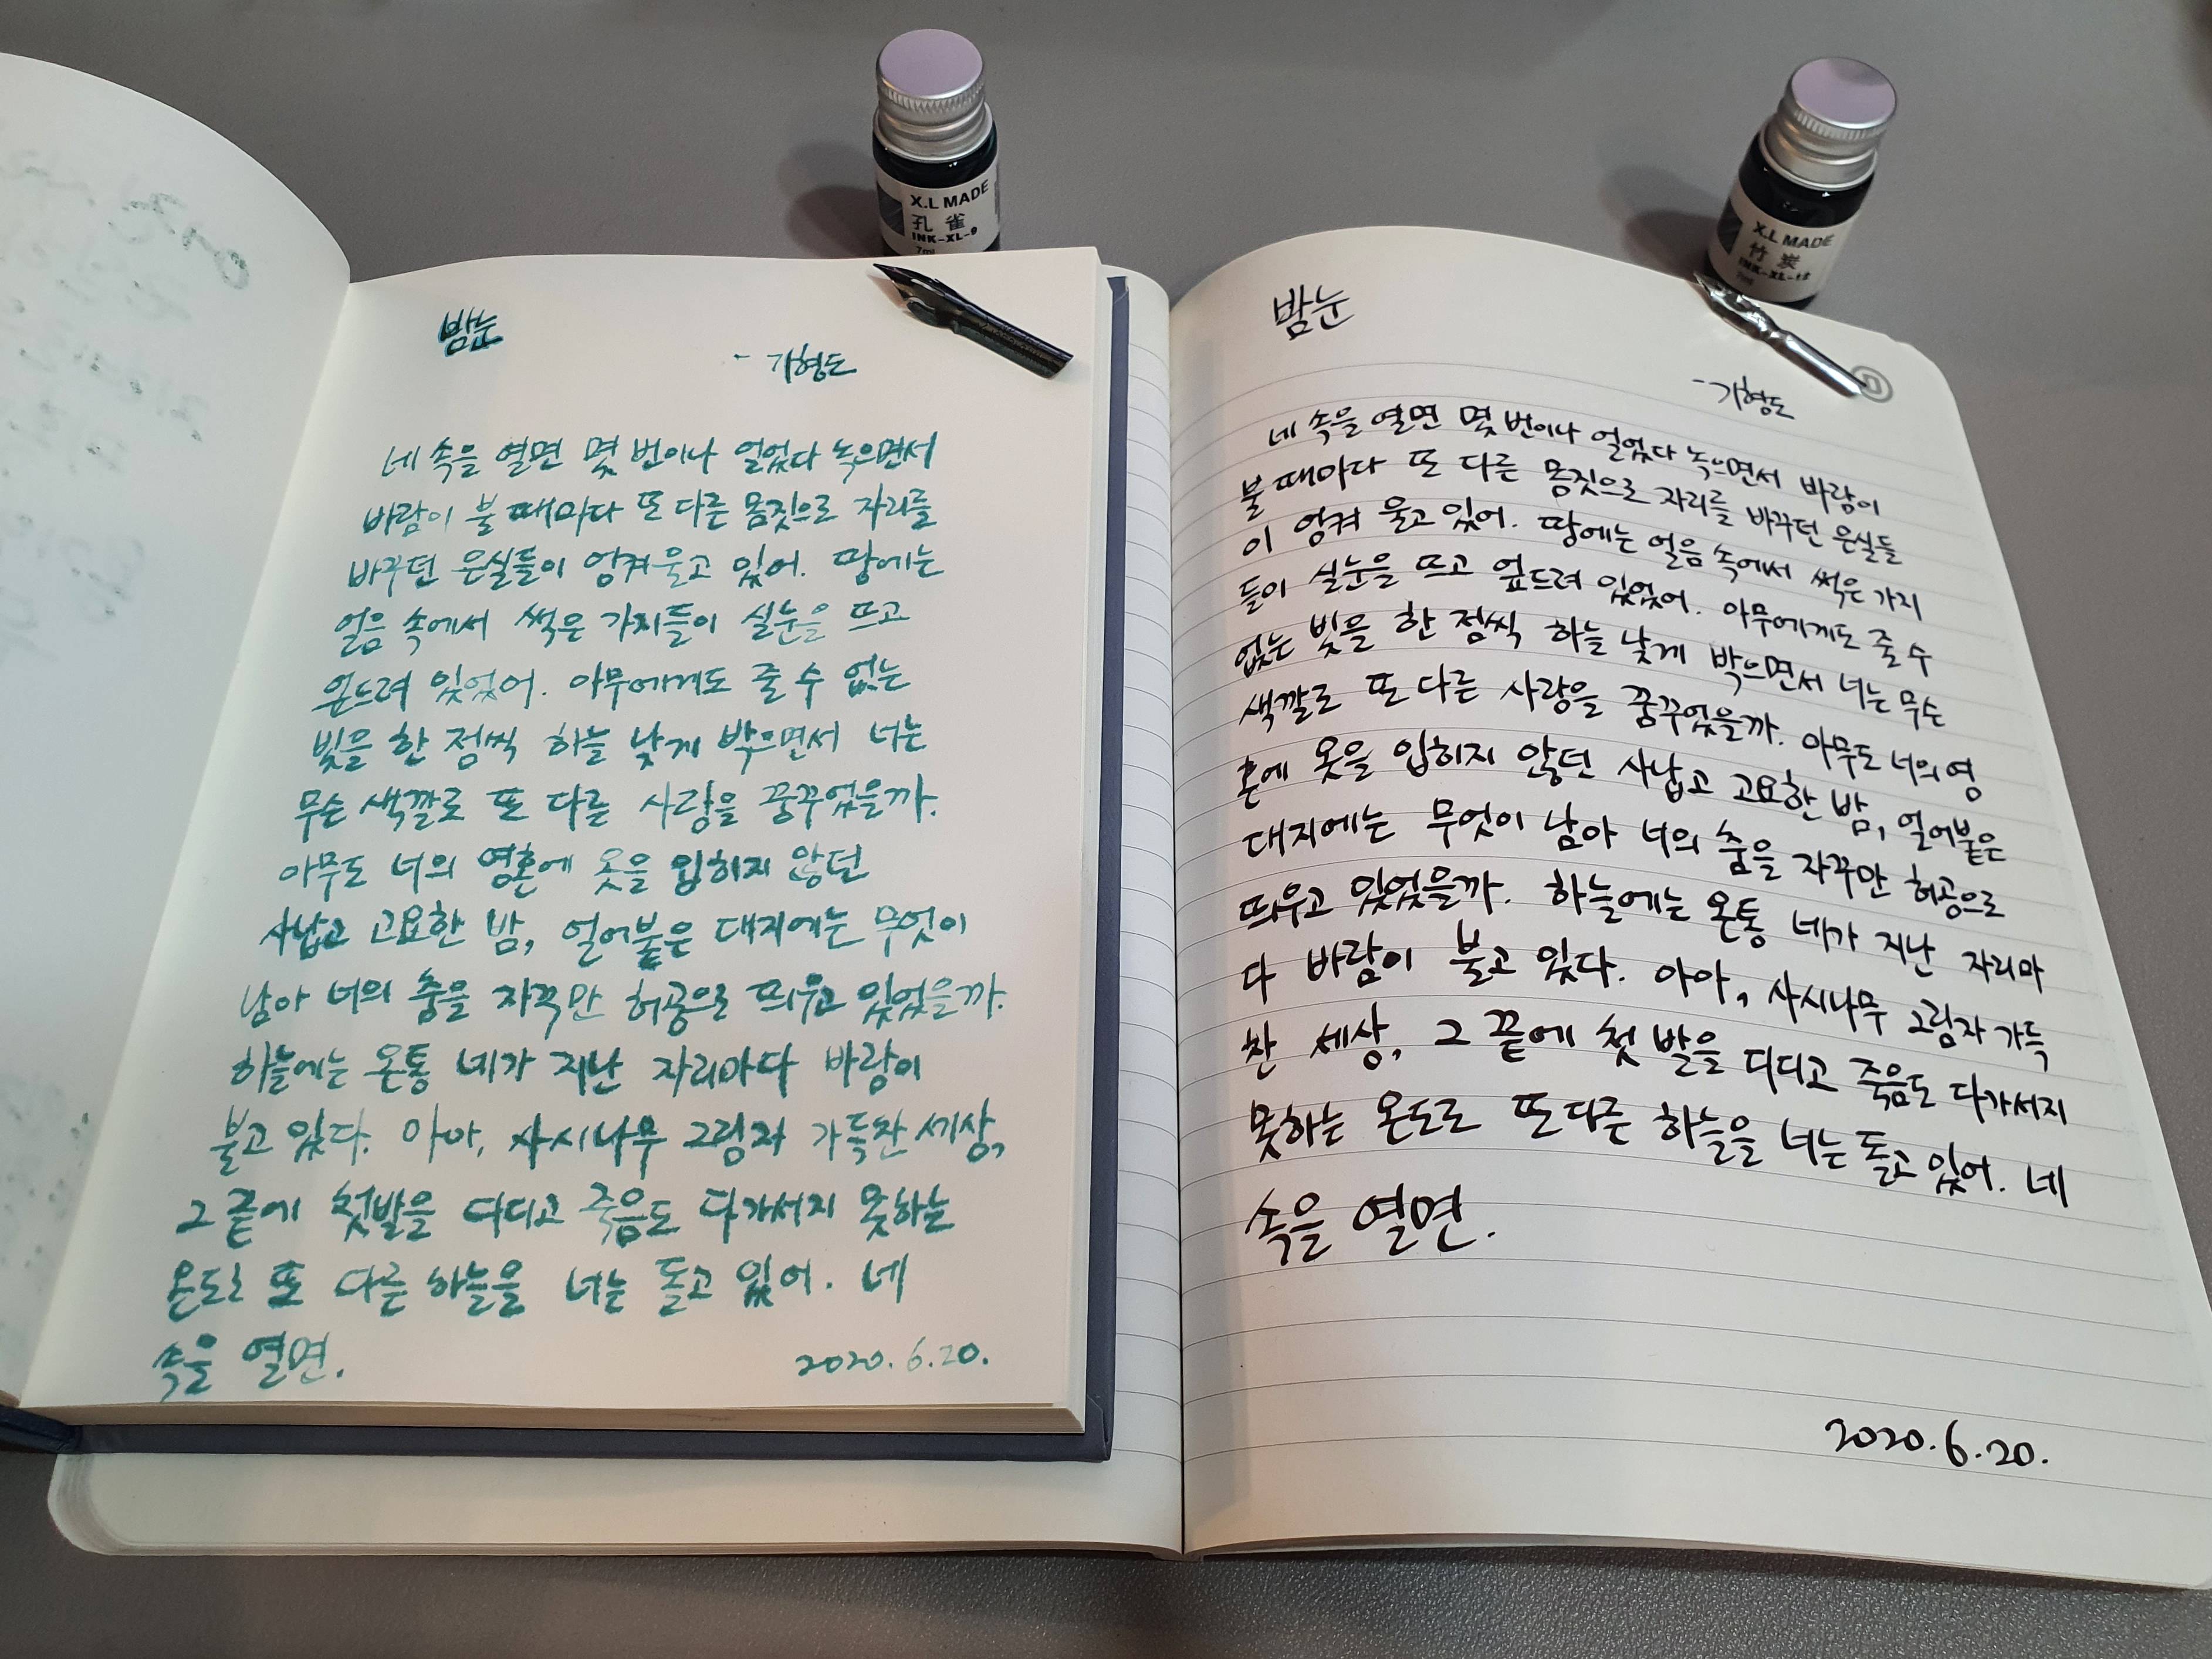 X.L MADE
孔雀
INK-XL-9
7ml
X.L MADE
竹炭
INK-XL-12
7ml
밤눈
- 기형도
네 속을 열면 몇 번이나 얼었다 녹으면서
바람이 불 때마다 또 다른 몸짓으로 자리를
바꾸던 은실들이 엉켜 울고 있어. 땅에는
얼음 속에서 썩은 가지들이 실눈을 뜨고
엎드려 있었어. 아무에게도 줄 수 없는
빛을 한 점씩 하늘 낮게 박으면서 너는
무슨 색깔로 또 다른 사랑을 꿈꾸었을까.
아무도 너의 영혼에 옷을 입히지 않던
사납고 고요한 밤, 얼어붙은 대지에는 무엇이
남아 너의 춤을 자꾹만 허공으로 띄우고 있었을까.
하늘에는 온통 네가 지난 자리마다 바람이
불고 있다. 아아, 사시나무 그림자 가득찬 세상,
그 끝에 첫발을 디디고 죽음도 다가서지 못하는
온도로 또 다른 하늘을 너는 돌고 있어. 네
속을 열면.
2020.6.20.
밤눈
- 기형도
네 속을 열면 몇 번이나 얼었다 녹으면서 바람이
불 때마다 또 다른 몸짓으로 자리를 바꾸던 은실들
이 엉켜 울고 있어. 땅에는 얼음 속에서 썩은 가지
들이 실눈을 뜨고 엎드려 있었어. 아무에게도 줄 수
없는 빛을 한 점씩 하늘 낮게 박으면서 너는 무슨
색깔로 또 다른 사랑을 꿈꾸었을까. 아무도 너의 영
혼에 옷을 입히지 않던 사납고 고요한 밤, 얼어붙은
대지에는 무엇이 남아 너의 춤을 자꾸만 허공으로
띄우고 있었을까. 하늘에는 온통 네가 지난 자리마
다 바람이 불고 있다. 아아, 사시나무 그림자 가득
찬 세상, 그 끝에 첫 발을 디디고 죽음도 다가서지
못하는 온도로 또 다른 하늘을 너는 돌고 있어. 네
속을 열면.
2020.6.20.